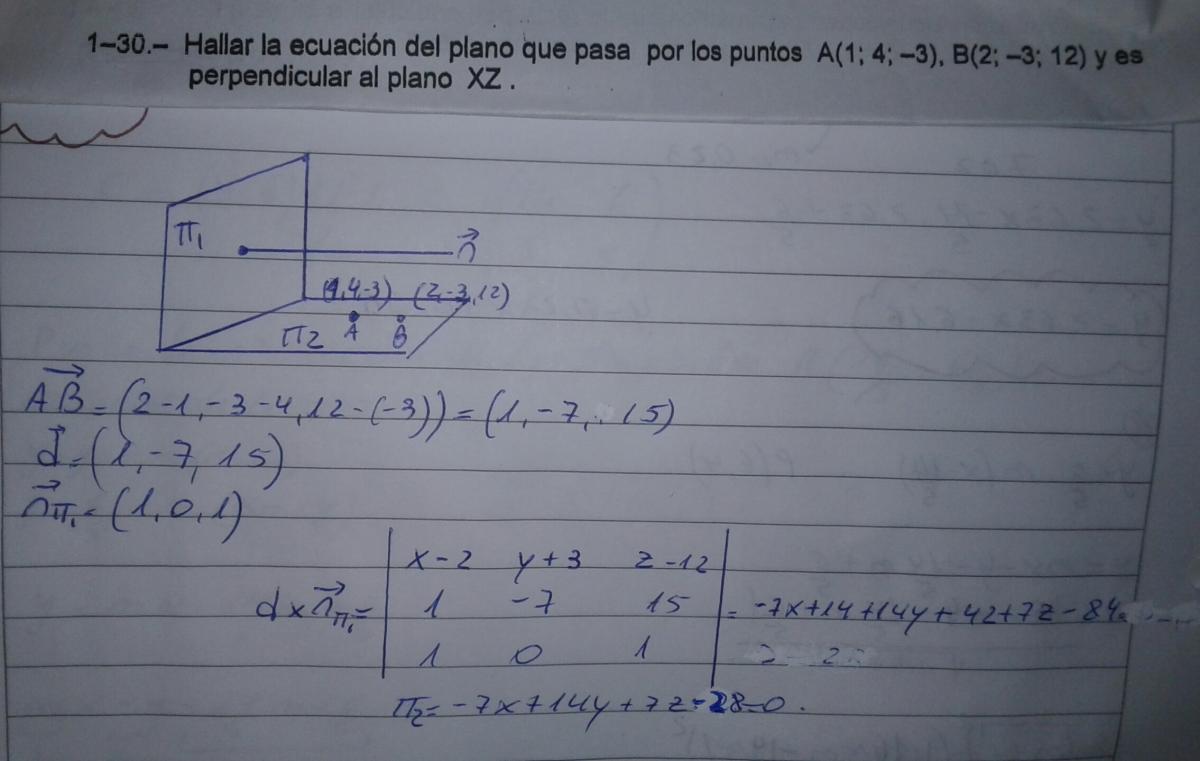 1–30.– Hallar la ecuación del plano que pasa por los puntos A(1; 4; –3), B(2; –3; 12) y es
perpendicular al plano XZ .
π₁
n⃗
(1,4,-3) (2,-3,12)
π₂ A B
AB⃗ = (2-1, -3-4, 12-(-3)) = (1, -7, 15)
d⃗ = (1, -7, 15)
n⃗π₁ = (1, 0, 1)
x-2 y+3 z-12
d x n⃗π₁ = 1 -7 15 = -7x+14+14y+42+7z-84
1 0 1
π₂ = -7x+14y+7z-28=0.